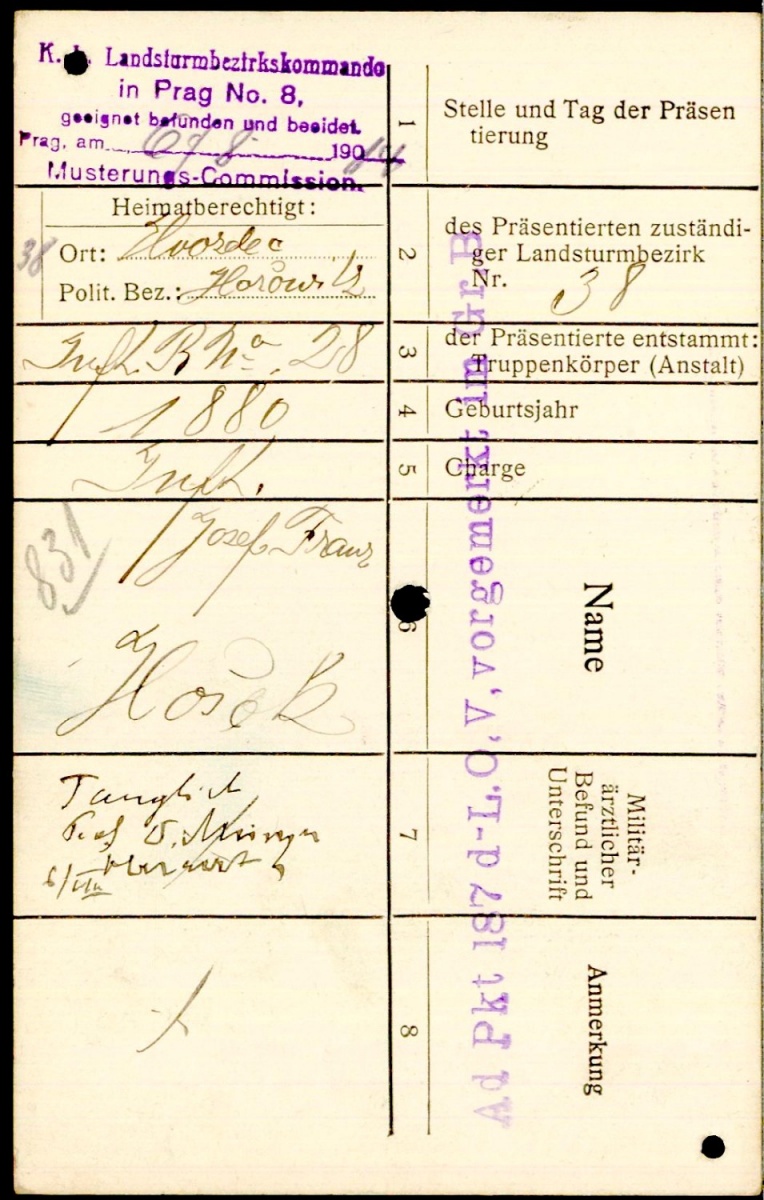 K. k. Landsturmbezirkskommando
in Prag No. 8,
geeignet befunden und beeidet.
Prag, am 6/8 1914
Musterungs-Commission.
1
Stelle und Tag der Präsen
tierung
38
Heimatberechtigt:
Ort: Hvozdec
Polit. Bez.: Hořowitz
2
des Präsentierten zuständi-
ger Landsturmbezirk
Nr. 38
Inft. R No. 28
3
der Präsentierte entstammt:
Truppenkörper (Anstalt)
1880
4
Geburtsjahr
Inft.
5
Charge
831
Josef Franz
Hošek
6
Name
Tauglich
6/VIII
7
Militär-
ärztlicher
Befund und
Unterschrift
8
Anmerkung
Ad Pkt 187 d-L.O.V. vorgemerkt. im Gr B